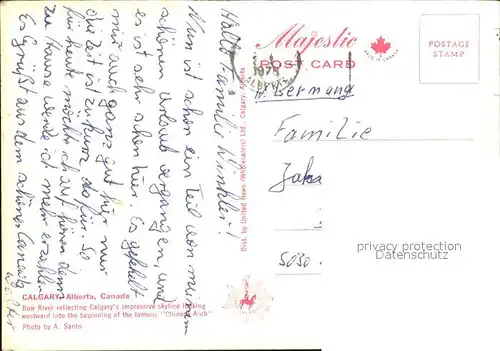 Hallo Familie Winkler!
Nun ist schon ein Teil von meinem
schönen Urlaub vergangen und
es ist sehr schön hier. Es gefällt
mir auch ganz gut hier nur
die Zeit ist zu kurz dafür. So
für heute möchte ich auf hören denn
zu Hause werde ich mehr erzählen
Es grüßt aus dem schönen Canada
Walter
CALGARY, Alberta, Canada
Bow River reflecting Calgary's impressive skyline looking
westward into the beginning of the famous "Chinook Arch"
Photo by A. Santo
Dist. by United News (Wholesalers) Ltd., Calgary, Alberta
Majestic
POST CARD
MADE IN CANADA
POSTAGE
STAMP
1975
Germany
Familie
5030
privacy protection
OldThing.de